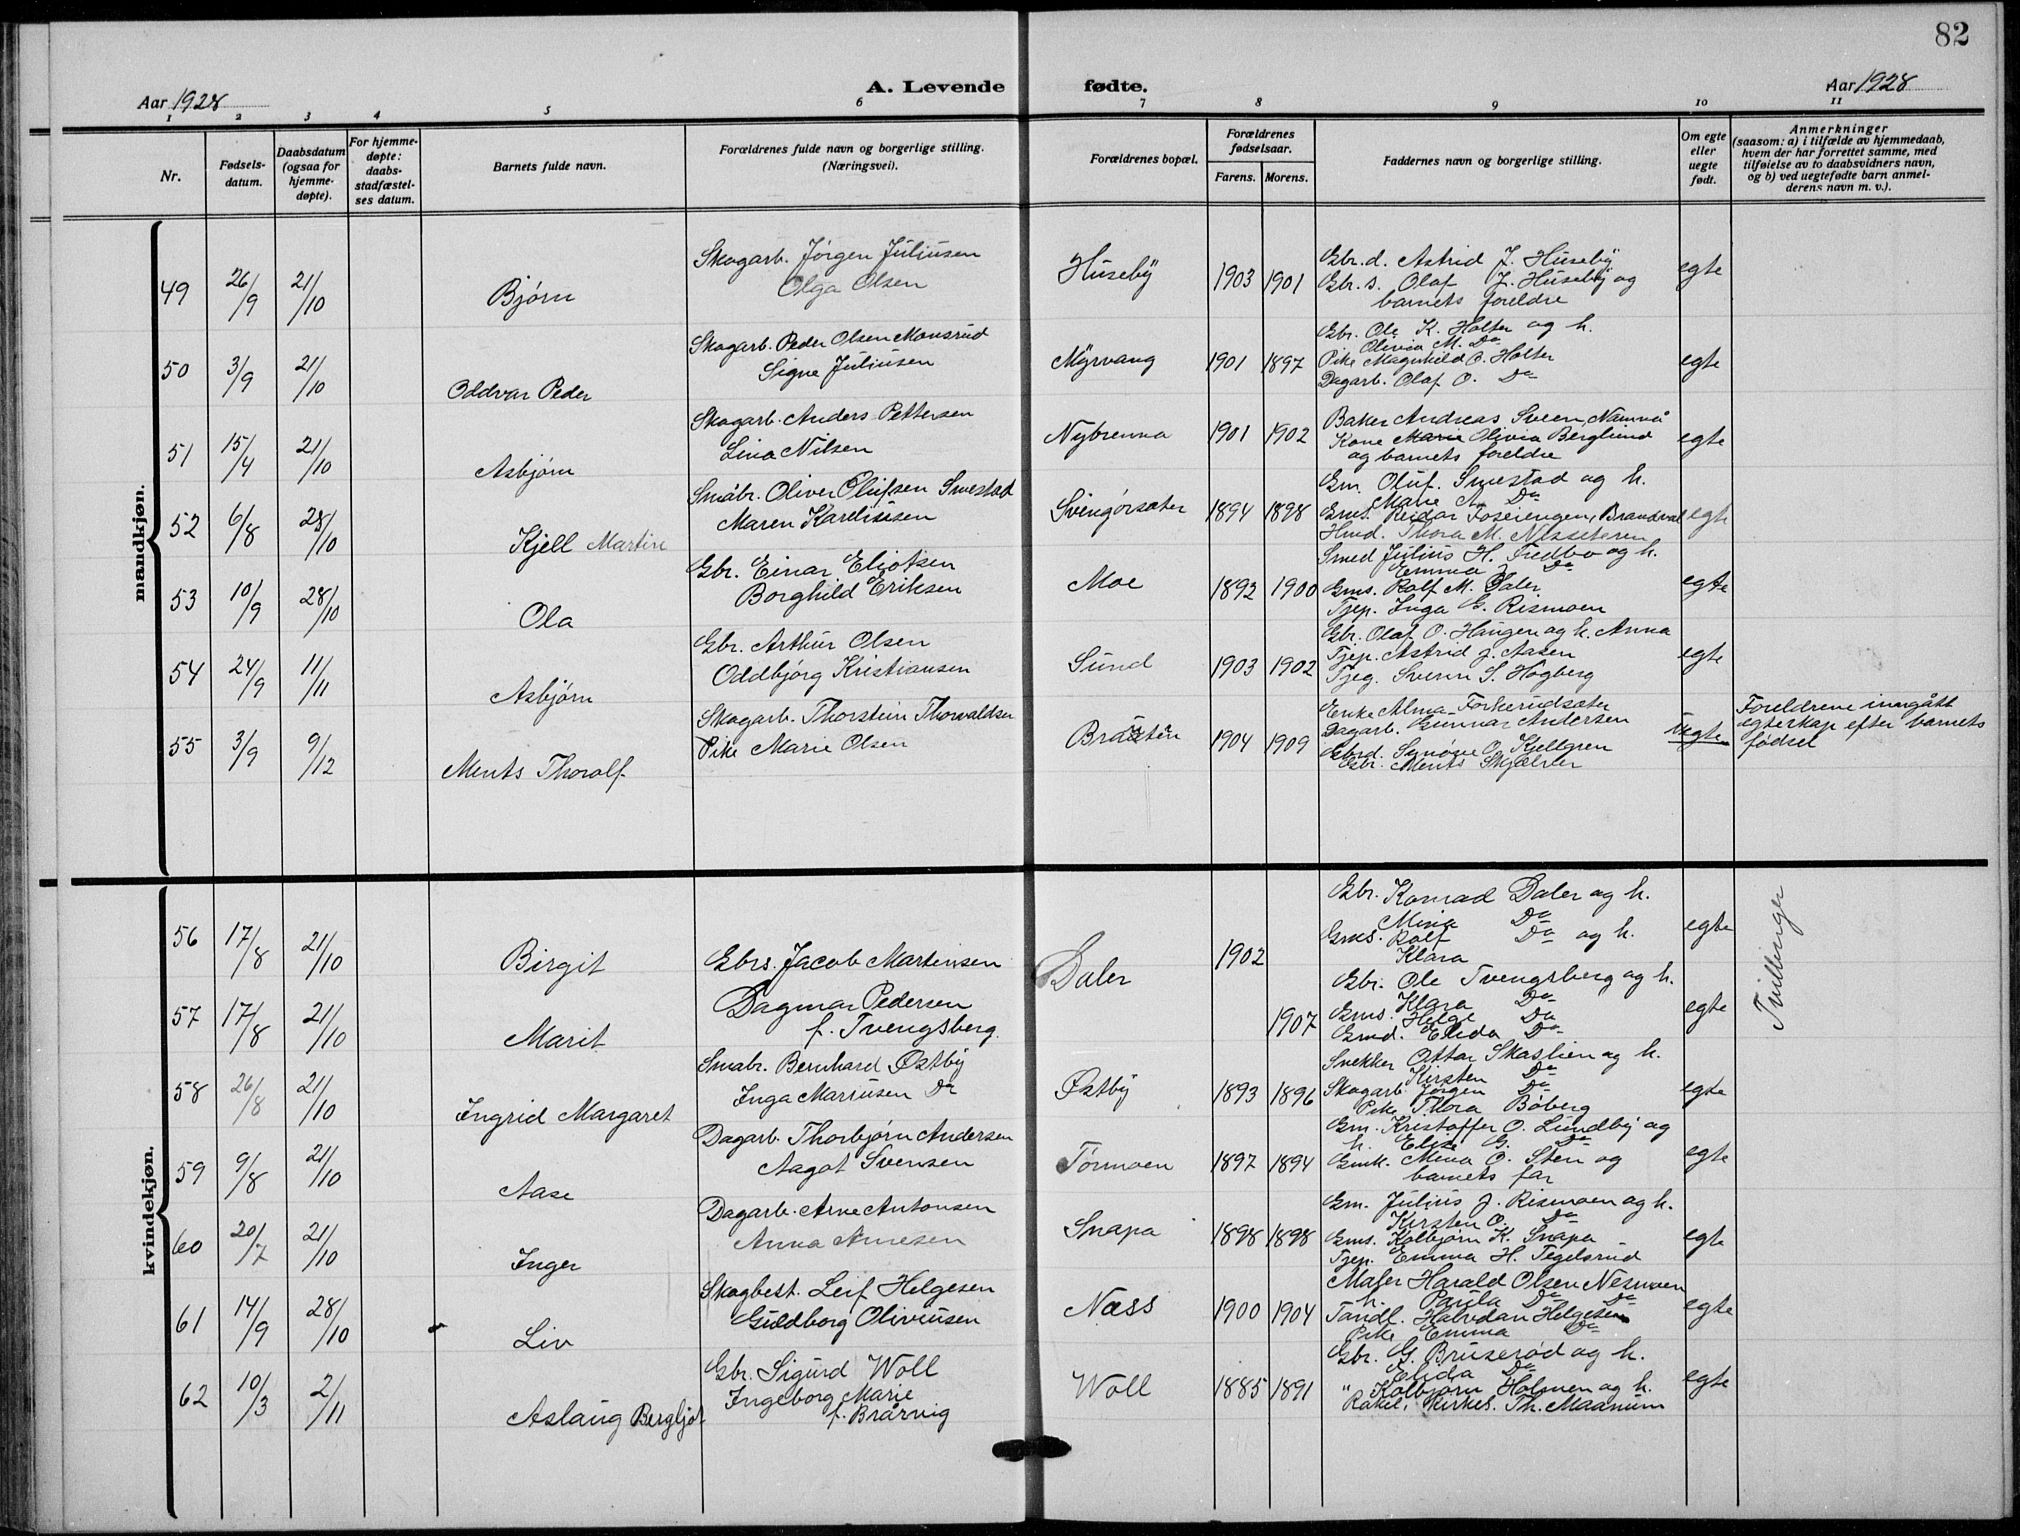 82
Aar 1928
A. Levende fødte.
Aar 1928
1 2 3 4 5 6 7 8 9 10 11
Nr.
Fødsels-
datum.
Daabsdatum
(ogsaa for
hjemme-
døpte).
For hjemme-
døpte:
daabs-
stadfæstel-
ses datum.
Barnets fulde navn.
Forældrenes fulde navn og borgerlige stilling.
(Næringsvei).
Forældrenes bopæl.
Forældrenes
fødselsaar.
Farens. Morens.
Faddernes navn og borgerlige stilling.
Om egte
eller
uegte
født.
Anmerkninger
(saasom: a) i tilfælde av hjemmedaab,
hvem der har forrettet samme, med
tilføielse av to daabsvidners navn,
og b) ved uegtefødte barn anmel-
derens navn m. v.).
mandkjøn.
49 26/9 21/10 Bjørn
Skogarb. Jörgen Juliusen
Olga Olsen
Huseby 1903 1901
Gbr.d. Astrid J. Huseby
Gbr. s. Olaf J. Huseby og
barnets foreldre
egte
50 3/9 21/10 Oddvar Peder
Skogarb. Peder Olsen Monsrud
Signe Juliusen
Myrvang 1901 1897
Gbr. Ole K. Holter og h.
Olivia M. Do
Pike Magnhild O. Holter
Dagarb. Olaf O. Do
egte
51 15/4 21/10 Asbjørn
Skogarb. Anders Pettersen
Lina Nilsen
Nybrenna 1901 1902
Baker Andreas Sveen, Namnå
Kone Marie Olivia Berglund
og barnets foreldre
egte
52 6/8 28/10 Kjell Martin
Småbr. Oliver Olufsen Smestad
Maren Kareliusen
Svingörsæter 1894 1898
Gm. Oluf Smestad og h.
Marie A. Do
Gms. Reidar Foseiengen, Brandval
Hmd. Thora M. Nisseteren
egte
53 10/9 28/10 Ola
Gbr. Einar Eliotsen
Borghild Eriksen
Moe 1892 1900
Smed Julius H. Tredbo og h.
Emma J Do
Gms. Rolf M. Daler
Tjep. Inga G. Rismoen
egte
54 24/9 11/11 Asbjørn
Gbr. Arthur Olsen
Oddbjørg Kristiansen
Sund 1903 1902
Gbr. Olaf O. Haugen og h. Anna
Tjep. Astrid J. Aasen
Tjeg. Sverre S. Högberg
egte
55 3/9 9/12 Ments Thoralf
Skogarb. Thorstein Thorvaldsen
Pike Marie Olsen
Bråten 1904 1909
Enke Alma Forkerudsæter
Dagarb. Gunnar Andersen
Gbrd. Synöve O. Kjellgren
Gbr. Ments Skjælver
Uegte
Foreldrene inngått
egteskap efter barnets
födsel
kvindekjøn.
56 17/8 21/10 Birgit
Gbrs. Jacob Martinsen
Daler 1902
Gbr. Konrad Daler og h.
Mina Do
Gms. Rolf Do og h.
Klara
egte
Tvillinger
57 17/8 21/10 Marit
Dagmar Pedersen
f. Tvengsberg
1907
Gbr. Ole Tvengsberg og h.
Klara Do
Gms. Helge Do
Gmd. Elida Do
egte
58 26/8 21/10 Ingrid Margaret
Småbr. Bernhard Østby
Inga Mariusen Do
Østby 1893 1896
Snekker Ottar Skaslien og h.
Kirsten Do
Skogarb. Jørgen Do
Pike Thora Böberg
egte
59 9/8 21/10 Aase
Dagarb. Thorbjørn Andersen
Aagot Svensen
Törmoen 1897 1894
Gm. Kristoffer O. Lundby og
h. Elise G. Do
Gmk. Mina O. Sten og
barnets far
egte
60 20/7 21/10 Inger
Dagarb. Arne Antonsen
Anna Arnesen
Snapa 1898 1898
Gm. Julius J. Rismoen og h.
Kirsten O. Do
Gms. Kolbjørn K. Snapa
Tjep. Emma H. Tegelsrud
egte
61 14/9 28/10 Liv
Skogbest. Leif Helgesen
Guldborg Oliviusen
Næss 1900 1904
Maler Harald Olsen Nesmoen
h. Paula Do Do
Tandl. Halvdan Helgesen
Pike Emma Do
egte
62 10/3 2/11 Aslaug Bergljot
Gbr. Sigurd Woll
Ingeborg Marie
f. Brårvig
Woll 1885 1891
Gbr. G. Bruseröd og h.
Elida Do
" Kolbjørn Holmen og h.
Rakel, Kirkes. Th. Maanum
egte